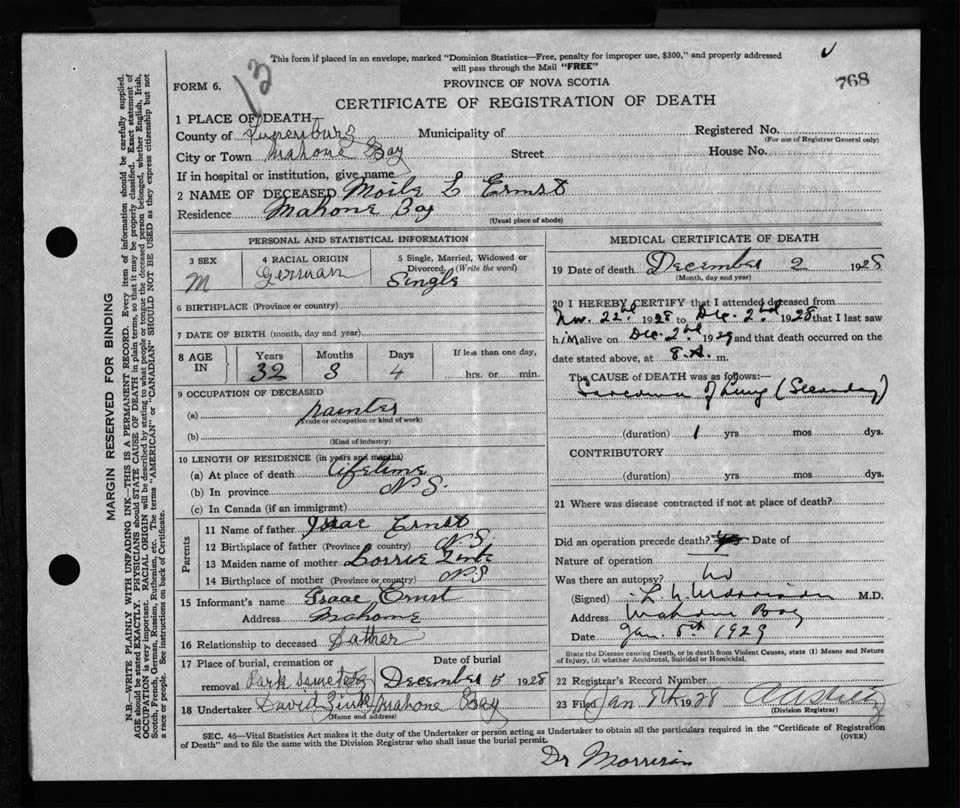 This form if placed in an envelope, marked "Dominion Statistics—Free, penalty for improper use, $300," and properly addressed
will pass through the Mail "FREE"
12
768
FORM 6.
PROVINCE OF NOVA SCOTIA
CERTIFICATE OF REGISTRATION OF DEATH
1 PLACE OF DEATH—
County of Lunenburg Municipality of Registered No.
(For use of Registrar General only)
City or Town Mahone Bay Street House No.
If in hospital or institution, give name
2 NAME OF DECEASED L Ernst
Residence Mahone Bay
(Usual place of abode)
PERSONAL AND STATISTICAL INFORMATION
3 SEX
M
4 RACIAL ORIGIN
German
5 Single, Married, Widowed or
Divorced. (Write the word)
Single
6 BIRTHPLACE (Province or country)
7 DATE OF BIRTH (month, day and year)
8 AGE
IN
Years
32
Months
3
Days
4
If less than one day,
hrs. or min.
9 OCCUPATION OF DECEASED
(a) Painter
(Trade or occupation or kind of work)
(b)
(Kind of industry)
10 LENGTH OF RESIDENCE (in years and months)
(a) At place of death Lifetime
(b) In province N.S.
(c) In Canada (if an immigrant)
Parents
11 Name of father Isaac Ernst
12 Birthplace of father (Province or country) N.S.
13 Maiden name of mother
14 Birthplace of mother (Province or country) N.S
15 Informant's name Isaac Ernst
Address Mahone
16 Relationship to deceased Father
17 Place of burial, cremation or
removal Park Cemetery
Date of burial
December 5 1928
18 Undertaker David Zink Mahone Bay
(Name and address)
MEDICAL CERTIFICATE OF DEATH
19 Date of death December 2 1928
(Month, day and year)
20 I HEREBY CERTIFY that I attended deceased from
Nov. 22nd 1928 to Dec. 2nd 1928 that I last saw
him alive on Dec. 2nd 1929 and that death occurred on the
date stated above, at 8.A. m.
The CAUSE of DEATH was as follows:—
Sarcoma of Lung (Secondary)
(duration) 1 yrs mos dys.
CONTRIBUTORY
(duration) yrs mos dys.
21 Where was disease contracted if not at place of death?
Did an operation precede death? Date of
Nature of operation
Was there an autopsy? No
(Signed) Morrison M.D.
Address Mahone Bay
Date Jan. 5th 1929
State the Disease causing Death, or in death from Violent Causes, state (1) Means and Nature
of Injury, (2) whether Accidental, Suicidal or Homicidal.
22 Registrar's Record Number
23 Filed Jan 1928
(Division Registrar)
SEC. 46—Vital Statistics Act makes it the duty of the Undertaker or person acting as Undertaker to obtain all the particulars required in the "Certificate of Registration
of Death" and to file the same with the Division Registrar who shall issue the burial permit. (OVER)
Dr Morrison
MARGIN RESERVED FOR BINDING
N.B.—WRITE PLAINLY WITH UNFADING INK—THIS IS A PERMANENT RECORD. Every item of information should be carefully supplied.
AGE should be stated EXACTLY. PHYSICIANS should STATE CAUSE OF DEATH in plain terms, so that it may be properly classified. Exact statement of
OCCUPATION is very important. RACIAL ORIGIN will be described by stating to what people or tongue the deceased person belonged, whether English, Irish,
Scotch, French, German, Russian, Ruthenian, etc. The terms "AMERICAN" or "CANADIAN" SHOULD NOT BE USED as they express citizenship but not
a race or people. See instructions on back of Certificate.